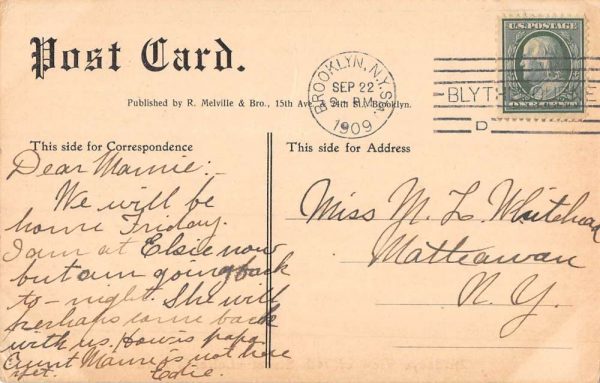 Post Card.
Published by R. Melville & Bro., 15th Ave. & 24th St., Brooklyn.
BROOKLYN, N.Y. STA.
SEP 22
9 PM
1909
U.S. POSTAGE
ONE CENT
BLYTHE
D
This side for Correspondence
This side for Address
Dear Mamie:-
We will be
home Friday.
I am at Elsie now
but am going back
to-night. She will
perhaps come back
with us. How is papa
Aunt Mamie is not here
yet. Edie.
Miss M. L. Whitehead
Matteawan
N. Y.